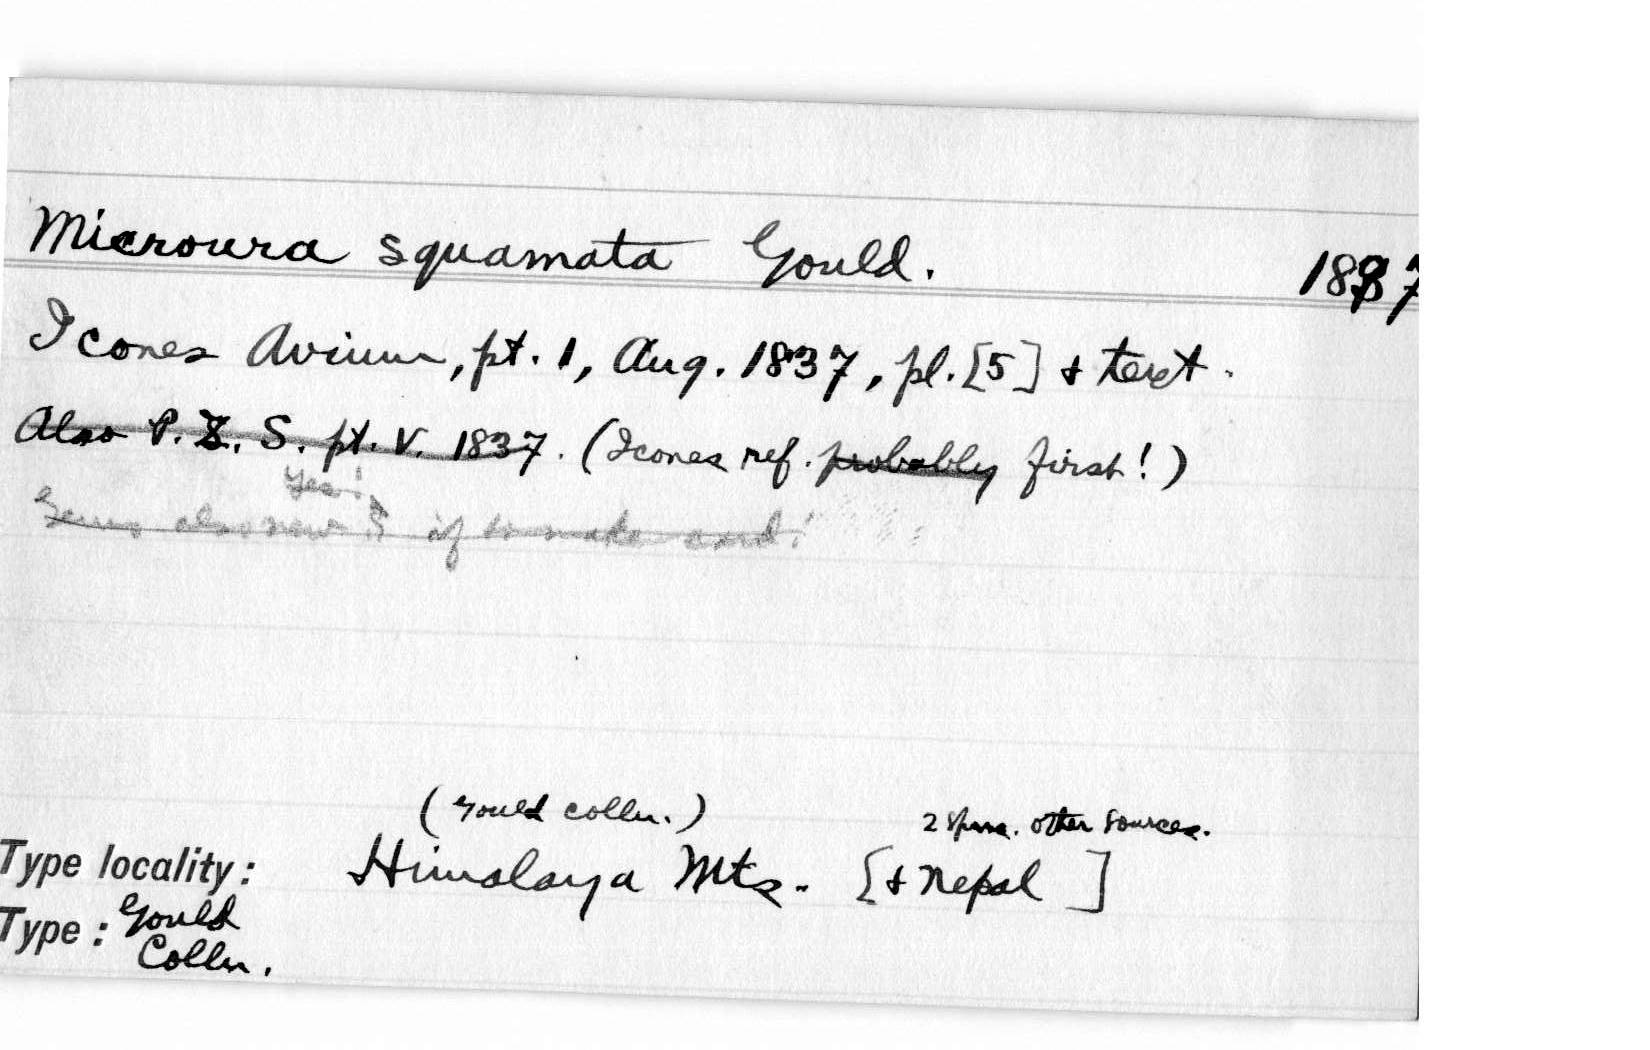 Microura squamata Gould. 1837
Icones Avium, pt. 1, Aug. 1837, pl. [5] & text.
Also P. Z. S. pt. V. 1837. (Icones ref. probably first!)
Yes!
Genus also new? if so make card!
(Gould colln.) 2 spms. other sources.
Type locality: Himalaya Mts. [& Nepal]
Type: Gould
Colln.